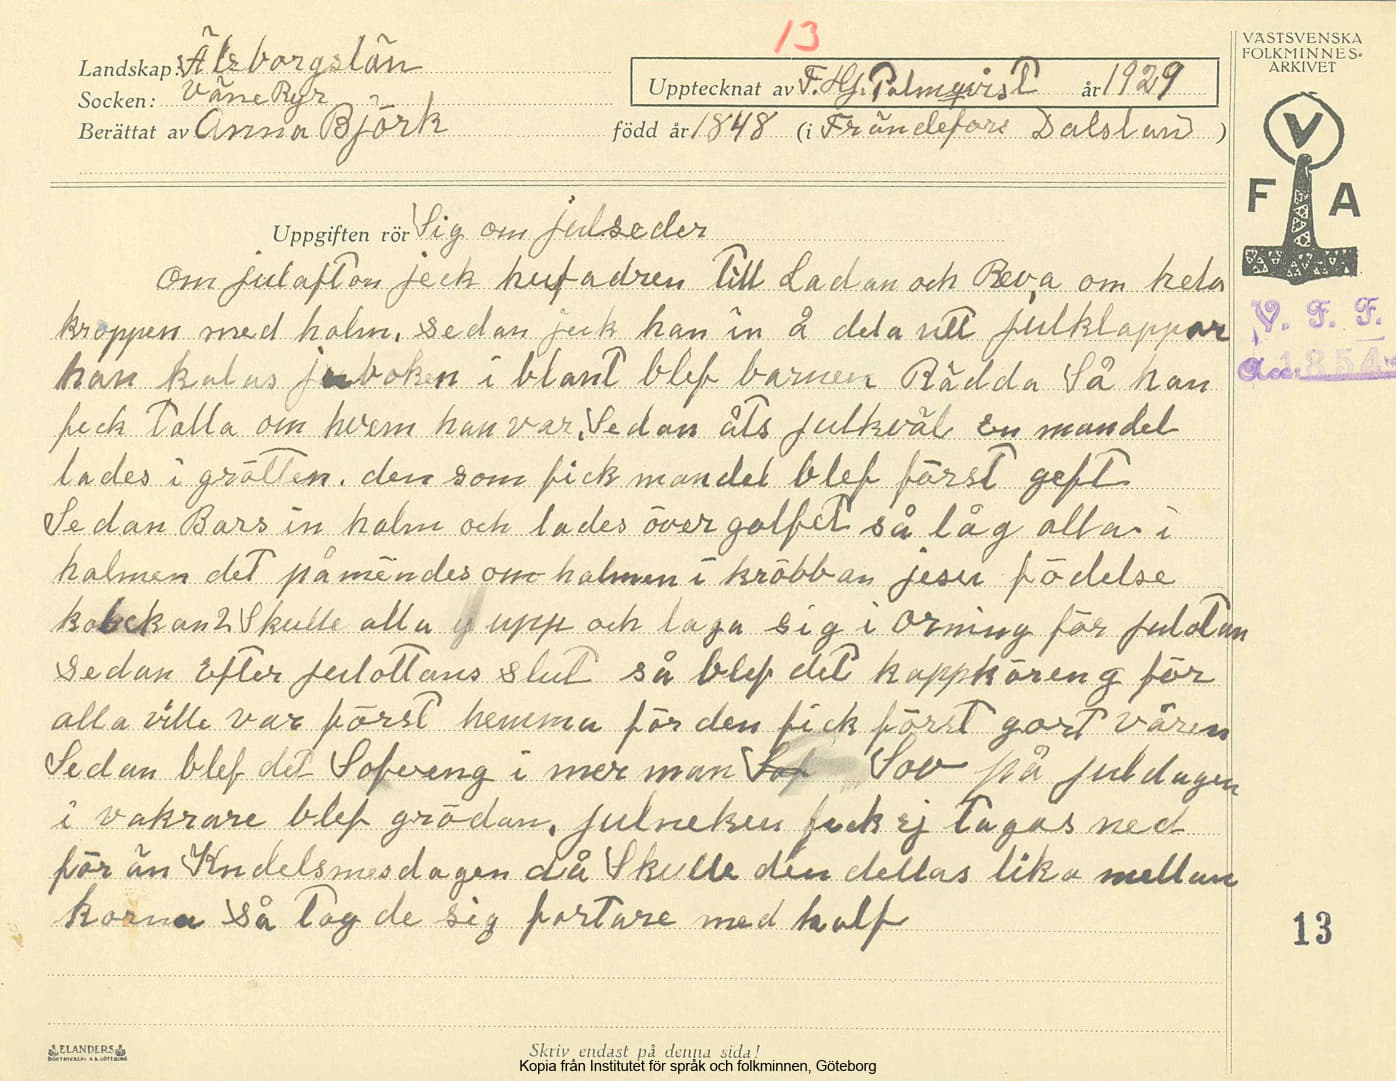 13
VÄSTSVENSKA
FOLKMINNES-
ARKIVET
Landskap: Älvborgslän
Socken: Väne Ryr
Upptecknat av F. Hj. Palmqvist år 1929
Berättat av Anna Björk född år 1848 (i Frändefors Dalsland)
V
F A
Uppgiften rör Sig om julseder
om julafton jeck hufadren till Ladan och Reva om hela
kroppen med halm. sedan jeck han in å dela utt julklappar
han kalas juboken i blant blef barnen Rädda Så han
feck talla om hvem han var. Sedan åts julkväl En mandel
lades i grötten. den som fick mandel blef först geft
Sedan Bars in halm och lades över golfet så låg alla i
halmen det påmendes om halmen i kröbban jesu födelse
kockan 2 Skulle alla upp och laga sig i orning för julotan
Sedan Efter julottans slut så blef det kappköreng för
alla ville var först hemma för den fick först gort våren
Sedan blef det Sofveng i mer man Sof Sov på juldagen
i vakrare blef grödan. julneken feck ej tagas ned
för än Kndelsmesdagen då Skulle den dellas lika mellan
korna så tog de sig fortare med kalf
V. F. F.
Acc. 1854
13
ELANDERS
BOKTRYCKERI A.B. GÖTEBORG
Skriv endast på denna sida!
Kopia från Institutet för språk och folkminnen, Göteborg